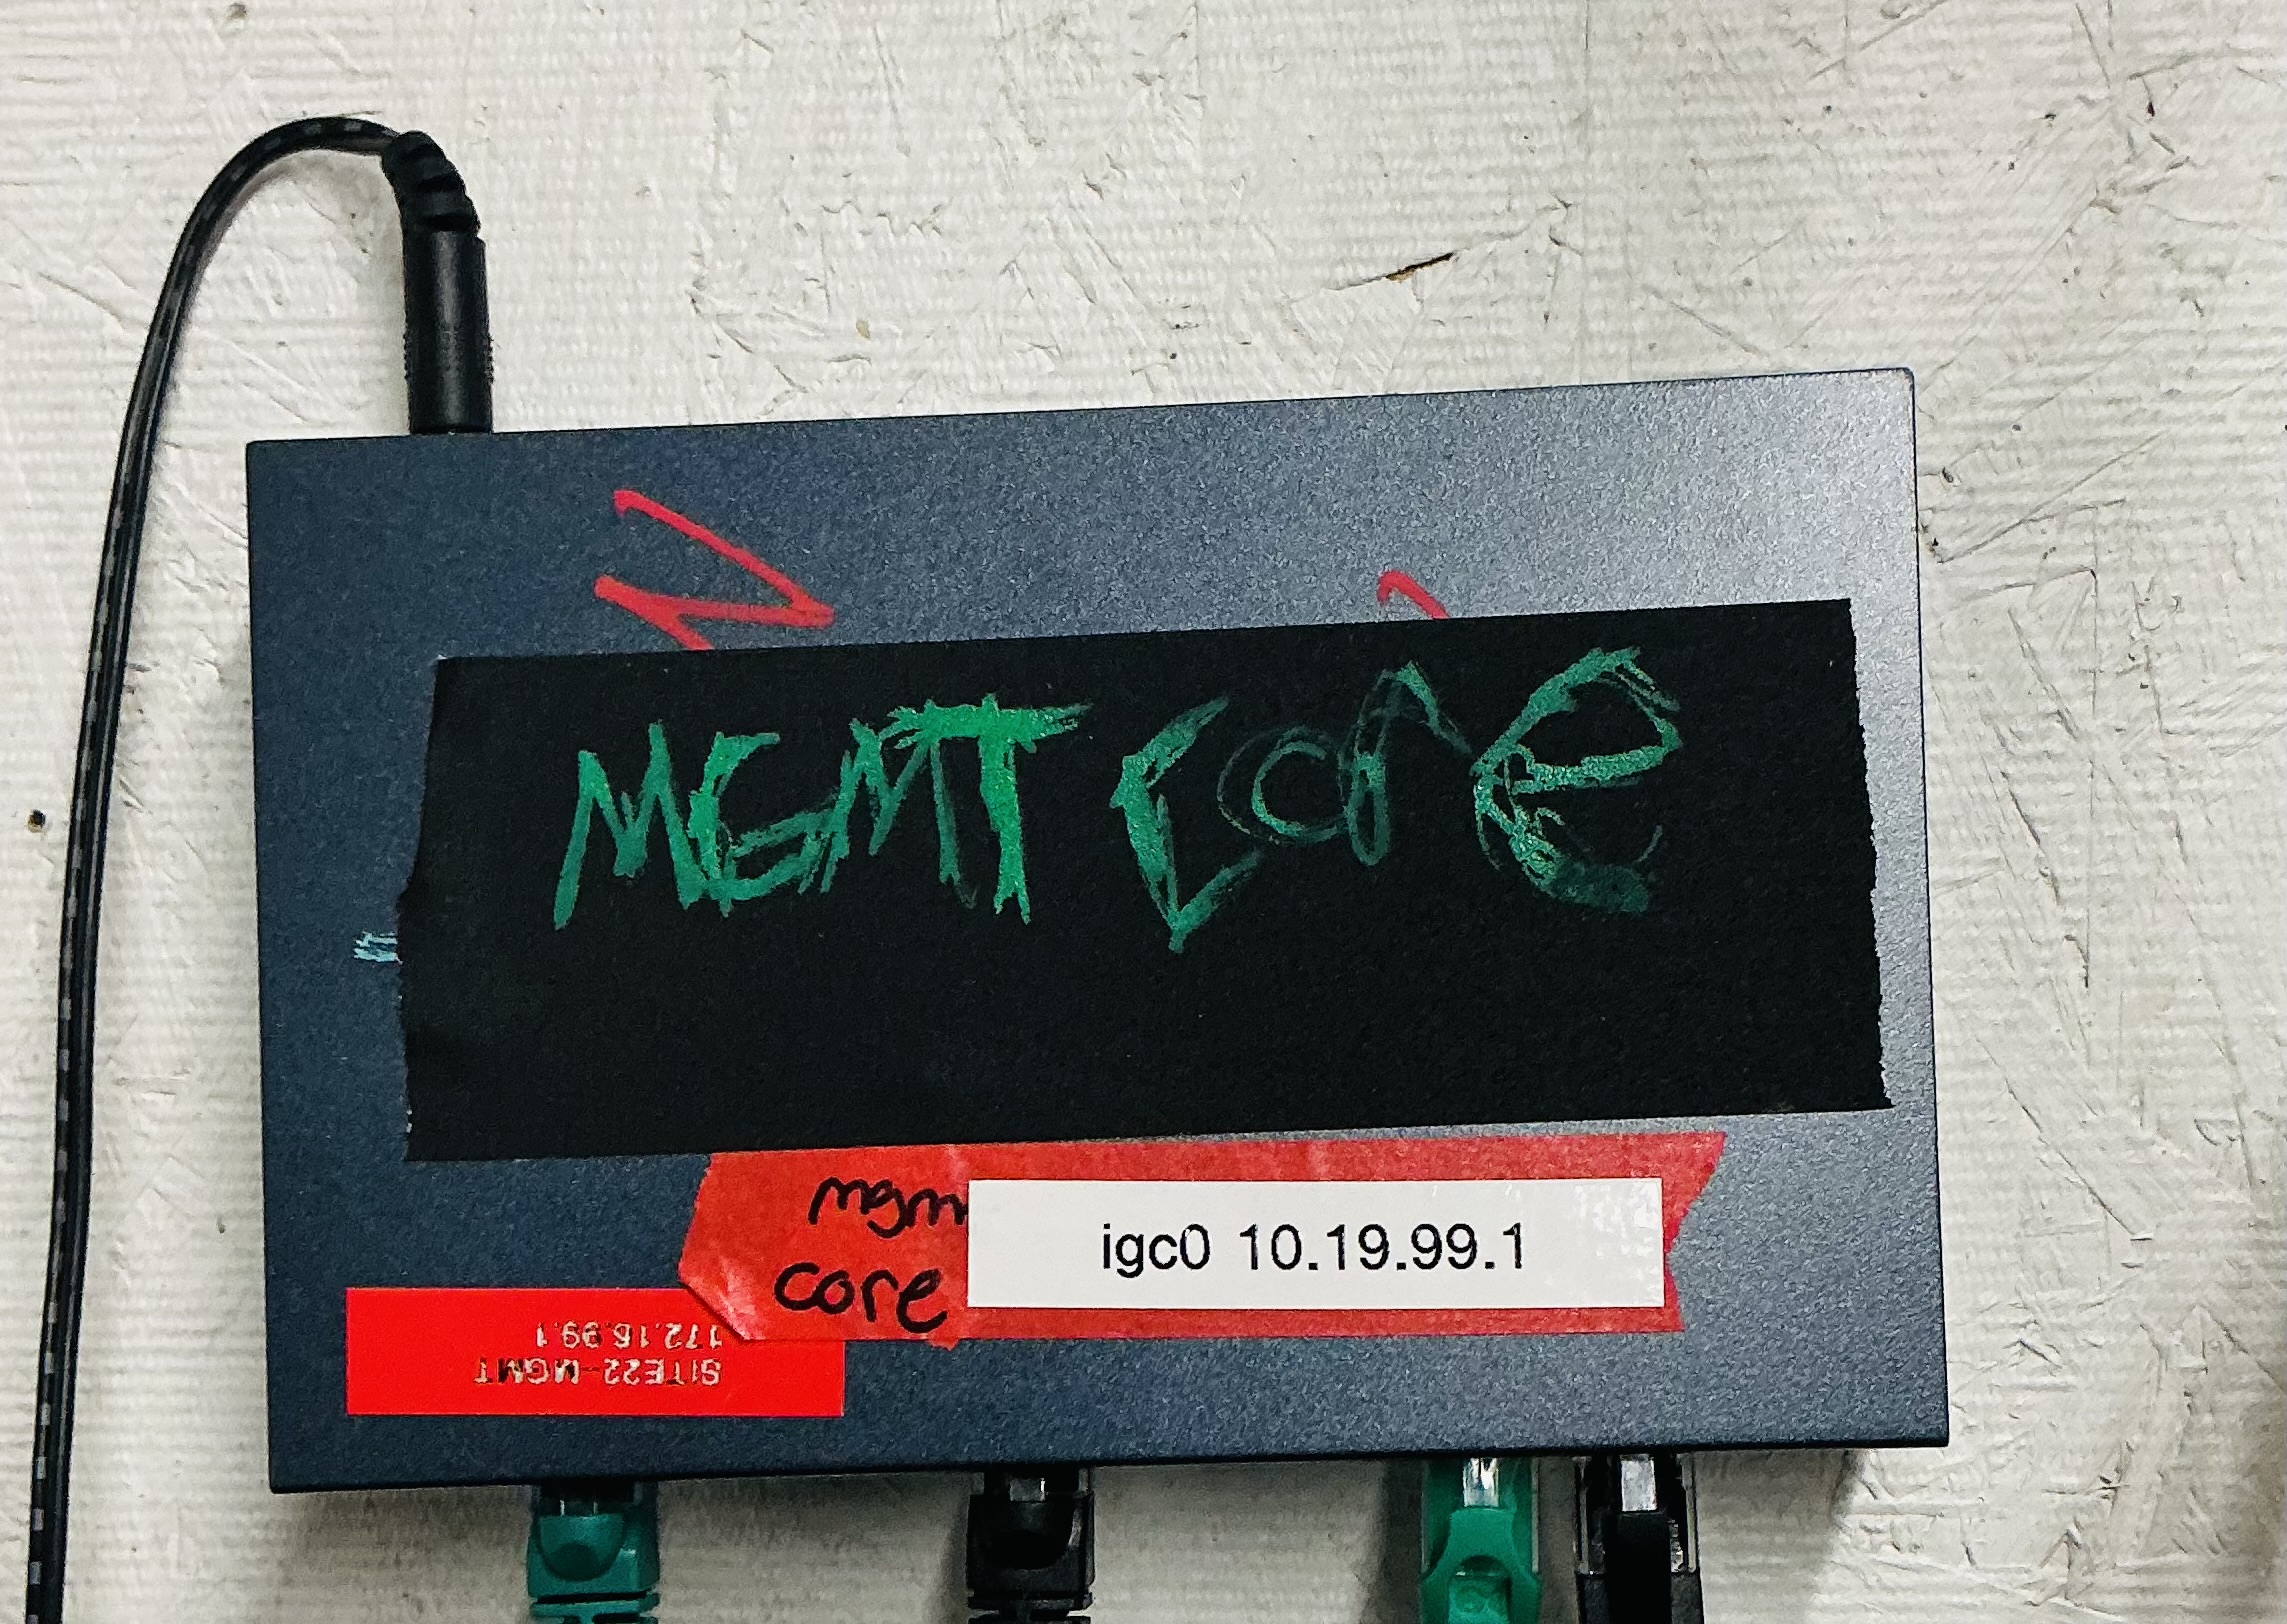 MGMT core
mgm
core
igc0 10.19.99.1
SITE22-MGMT
172.16.99.1